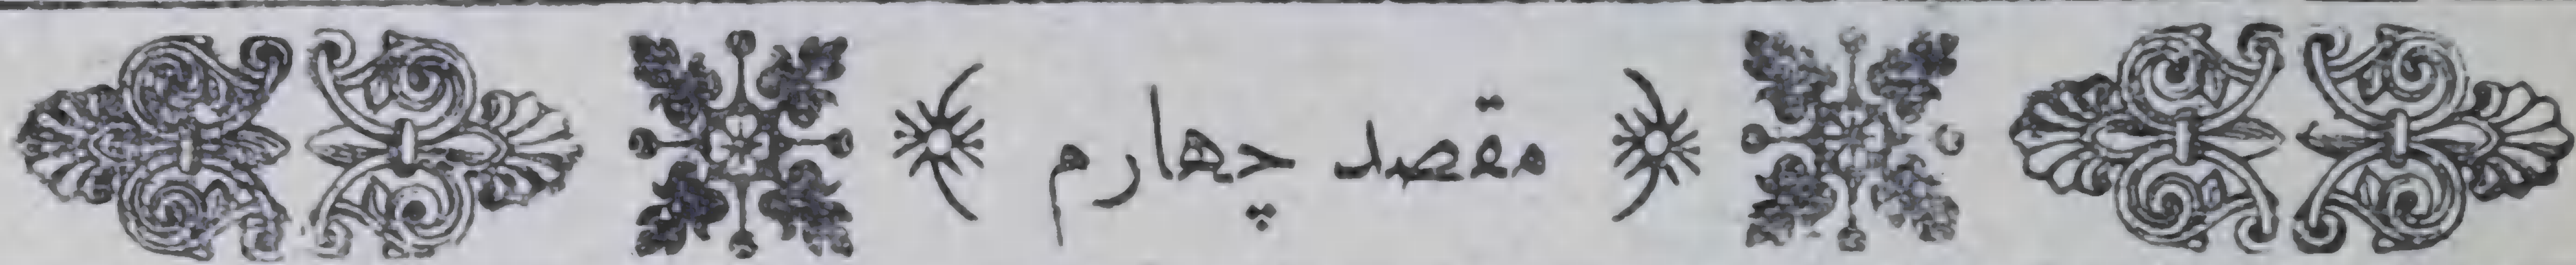 مقصد چهارم